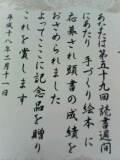 あなたは第五十九回読書週間
にあたり 手づくり絵本に
応募され頭書の成績を
おさめられました
よってここに記念品を贈り
これを賞します
平成十八年二月十一日